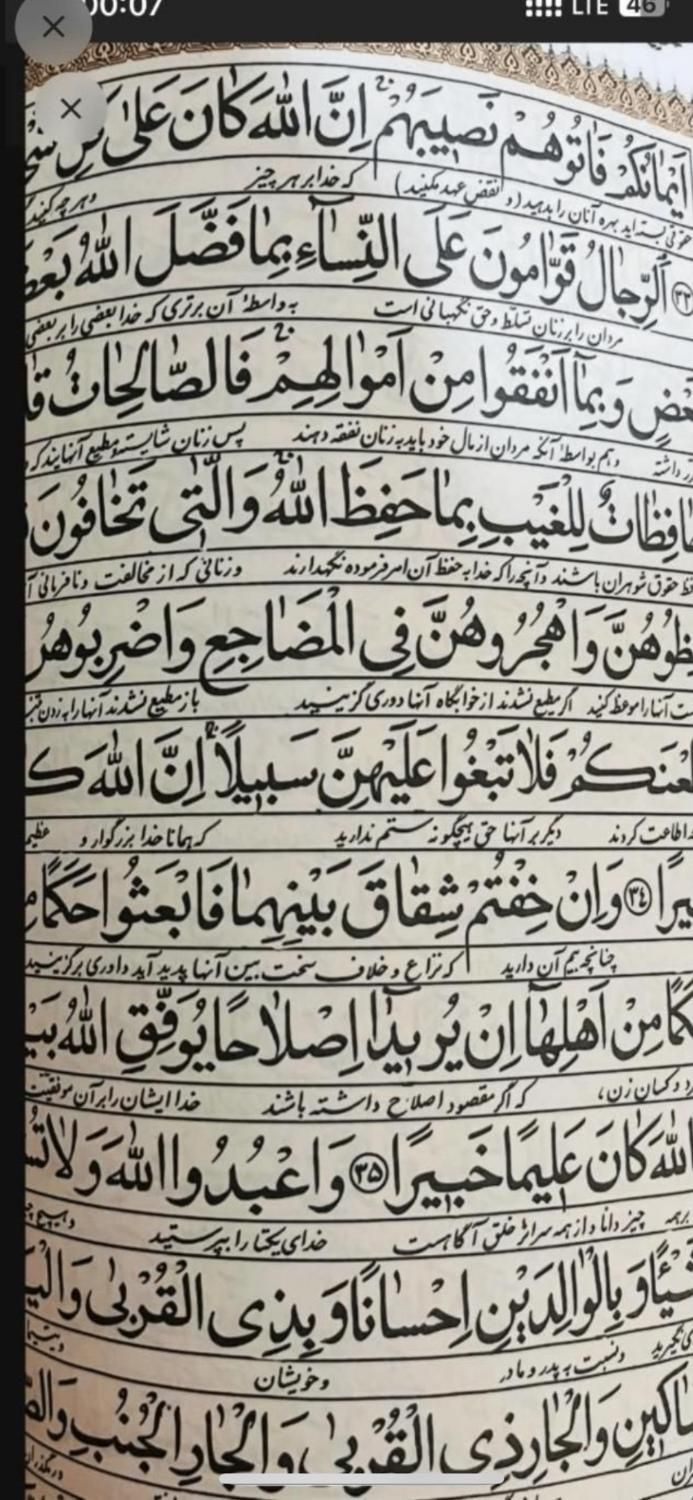 00:07 LTE 46
اَيْمانُكُمْ فَاٰتُوهُمْ نَصيبَهُمْ اِنَّ اللّٰهَ كانَ عَلىٰ
بسته‌اید بهره آنان را بدهید (و نقض عهد مکنید) که خدا بر هر چیز و هر چه کنید
﴿٣٣﴾ اَلرِّجالُ قَوّامُونَ عَلَى النِّساۤءِ بِما فَضَّلَ اللّٰهُ
مردان را بر زنان تسلط و حق نگهبانی است به واسطهٔ آن برتری که خدا بعضی را بر بعضی
وَبِماۤ اَنْفَقُوا مِنْ اَمْوالِهِمْ فَالصّالِحاتُ
و هم بواسطهٔ آنکه مردان از مال خود باید به زنان نفقه دهند پس زنان شایسته و مطیع آنهایند که
لِلْغَيْبِ بِما حَفِظَ اللّٰهُ وَالّٰتى تَخافُونَ
حقوق شوهران باشند و آنچه را که خدا به حفظ آن امر فرموده نگهدارند و زنانی که از مخالفت و نافرمانی
وَاهْجُرُوهُنَّ فِى الْمَضاجِعِ وَاضْرِبُوهُنَّ
آنها را موعظه کنید اگر مطیع نشدند از خوابگاه آنها دوری گزینید باز مطیع نشدند آنها را به زدن
فَلا تَبْغُوا عَلَيْهِنَّ سَبيلًا اِنَّ اللّٰهَ
اطاعت کردند دیگر بر آنها حق هیچگونه ستم ندارید که همانا خدا بزرگوار و
﴿٣٤﴾ وَاِنْ خِفْتُمْ شِقاقَ بَيْنِهِما فَابْعَثُوا حَكَمًا
چنانچه بیم آن دارید که نزاع و خلاف سخت بین آنها پدید آید داوری برگزینید
مِنْ اَهْلِهاۤ اِنْ يُريداۤ اِصْلاحًا يُوَفِّقِ اللّٰهُ
و کسان زن، که اگر مقصود اصلاح داشته باشند خدا ایشان را بر آن موفقیت
اللّٰهَ كانَ عَليمًا خَبيرًا ﴿٣٥﴾ وَاعْبُدُوا اللّٰهَ وَلا
بر همه چیز دانا و از همه سرائر خلق آگاهست خدای یکتا را بپرستید و هیچ
وَبِالْوالِدَيْنِ اِحْسانًا وَبِذِى الْقُرْبىٰ
و نسبت به پدر و مادر و خویشان
وَالْجارِ ذِى الْقُرْبىٰ وَالْجارِ الْجُنُبِ